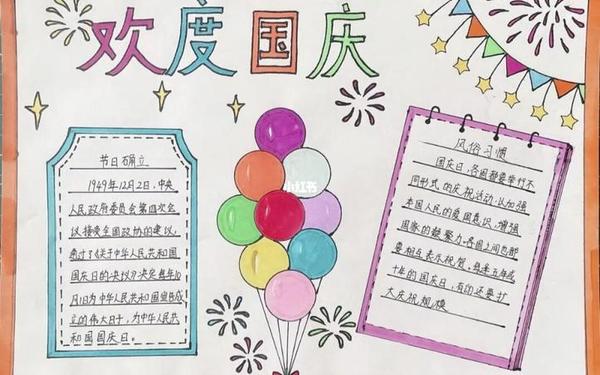 欢度国庆
节日确立
1949年12月2日,中央
人民政府委员会第四次会
议接受全国政协的建议,
通过了《关于中华人民共和国
国庆日的决议》决定每年10
月1日为中华人民共和国宣告成
立的伟大日子,为中华人民共
和国国庆日。
小红书
风俗习惯
国庆日,各国都要举行不
同形式的庆祝活动,以加强
本国人民的爱国意识,增强
国家的凝聚力。各国之间也都
要相互表示祝贺。每逢五年或
十年的国庆日,有的还要扩
大庆祝规模